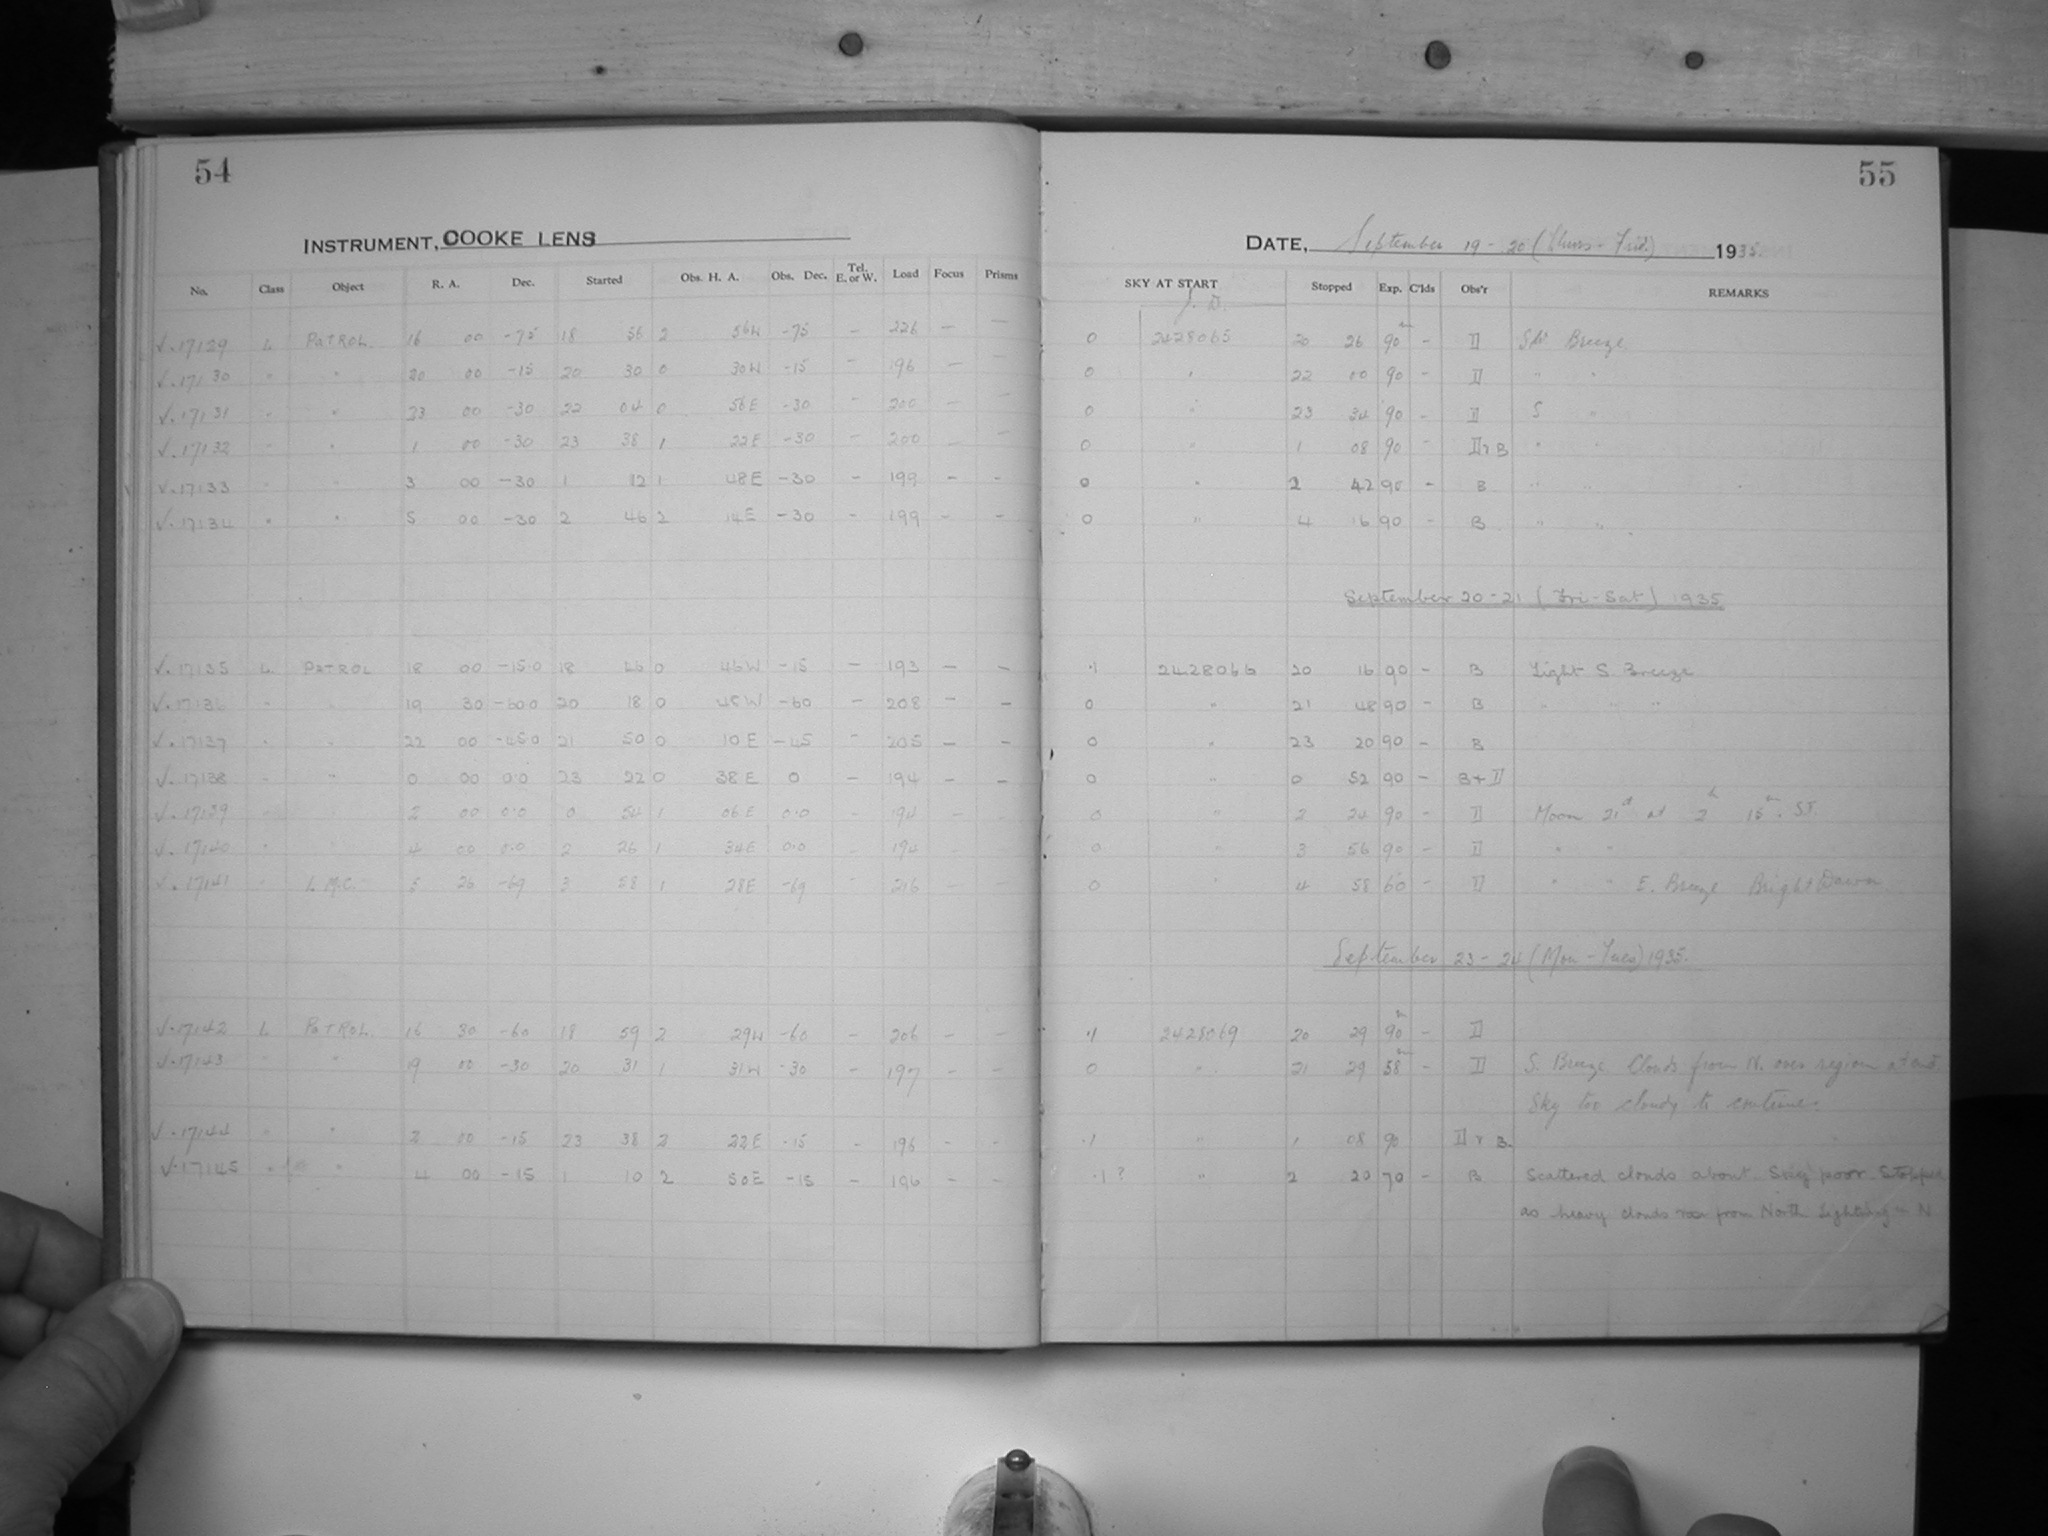 54
INSTRUMENT, COOKE LENS
No. Class Object R. A. Dec. Started Obs. H. A. Obs. Dec. Tel. E. or W. Load Focus Prisms
√.17129 L PATROL. 16 00 -75 18 56 2 56W -75 - 226 - -
√.17130 " " 20 00 -15 20 30 0 30W -15 - 196 - -
√.17131 " " 23 00 -30 22 04 0 56E -30 - 200 - -
√.17132 " " 1 00 -30 23 38 1 22E -30 - 200 - -
√.17133 " " 3 00 -30 1 12 1 48E -30 - 199 - -
√.17134 " " 5 00 -30 2 46 2 14E -30 - 199 - -
√.17135 L PATROL 18 00 -15.0 18 46 0 46W -15 - 193 - -
√.17136 " " 19 30 -60.0 20 18 0 48W -60 - 208 - -
√.17137 " " 22 00 -45.0 21 50 0 10E -45 - 205 - -
√.17138 " " 0 00 0.0 23 22 0 38E 0 - 194 - -
√.17139 " " 2 00 0.0 0 54 1 06E 0.0 - 194 - -
√.17140 " " 4 00 0.0 2 26 1 34E 0.0 - 194 - -
√.17141 " L.M.C. 5 26 -69 3 58 1 28E -69 - 216 - -
√.17142 L PATROL. 16 30 -60 18 59 2 29W -60 - 206 - -
√.17143 " " 19 00 -30 20 31 1 31W -30 - 197 - -
√.17144 " " 2 00 -15 23 38 2 22E -15 - 196 - -
√.17145 " " 4 00 -15 1 10 2 50E -15 - 196 - -
55
DATE, September 19-20 (Thurs-Frid.) 1935.
SKY AT START Stopped Exp. C'lds Obs'r REMARKS
J. D.
0 2428065 20 26 90m - II SW Breeze
0 " 22 00 90 - II " "
0 " 23 34 90 - II S "
0 " 1 08 90 - II+B " "
0 " 2 42 90 - B " "
0 " 4 16 90 - B " "
September 20-21 (Fri-Sat) 1935
.1 2428066 20 16 90 - B Light S. Breeze
0 " 21 48 90 - B " " "
0 " 23 20 90 - B
0 " 0 52 90 - B+II
0 " 2 24 90 - II Moon 21d at 2h 15m. ST.
0 " 3 56 90 - II " "
0 " 4 58 60 - II " " E. Breeze Bright Dawn
September 23-24 (Mon-Tues) 1935.
.1 2428069 20 29 90m - II
0 " 21 29 58m - II S. Breeze Clouds from N. over region at end
Sky too cloudy to continue.
.1 " 1 08 90 II + B.
.1? " 2 20 70 - B Scattered clouds about. Sky poor. Stopped
as heavy clouds rose from North Lightning in N